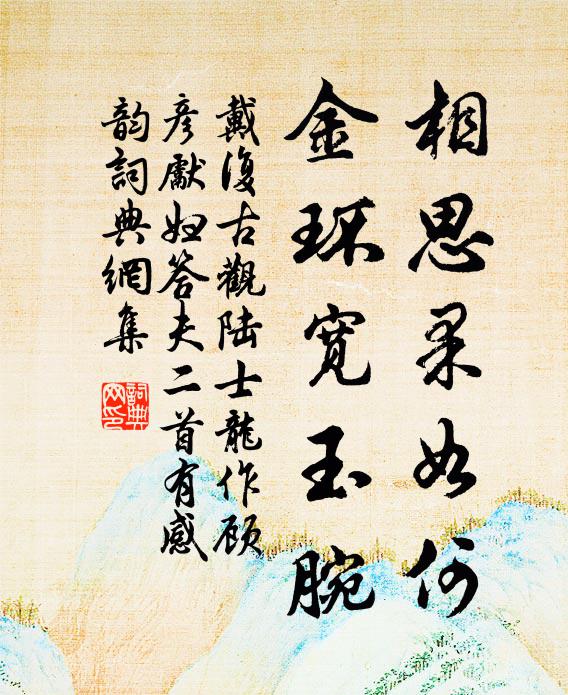 相思果如何
金环宽玉腕
戴復古觀陆士龍作顾
彥獻妇答夫二首有感
韵詞典網集
詞典
网印